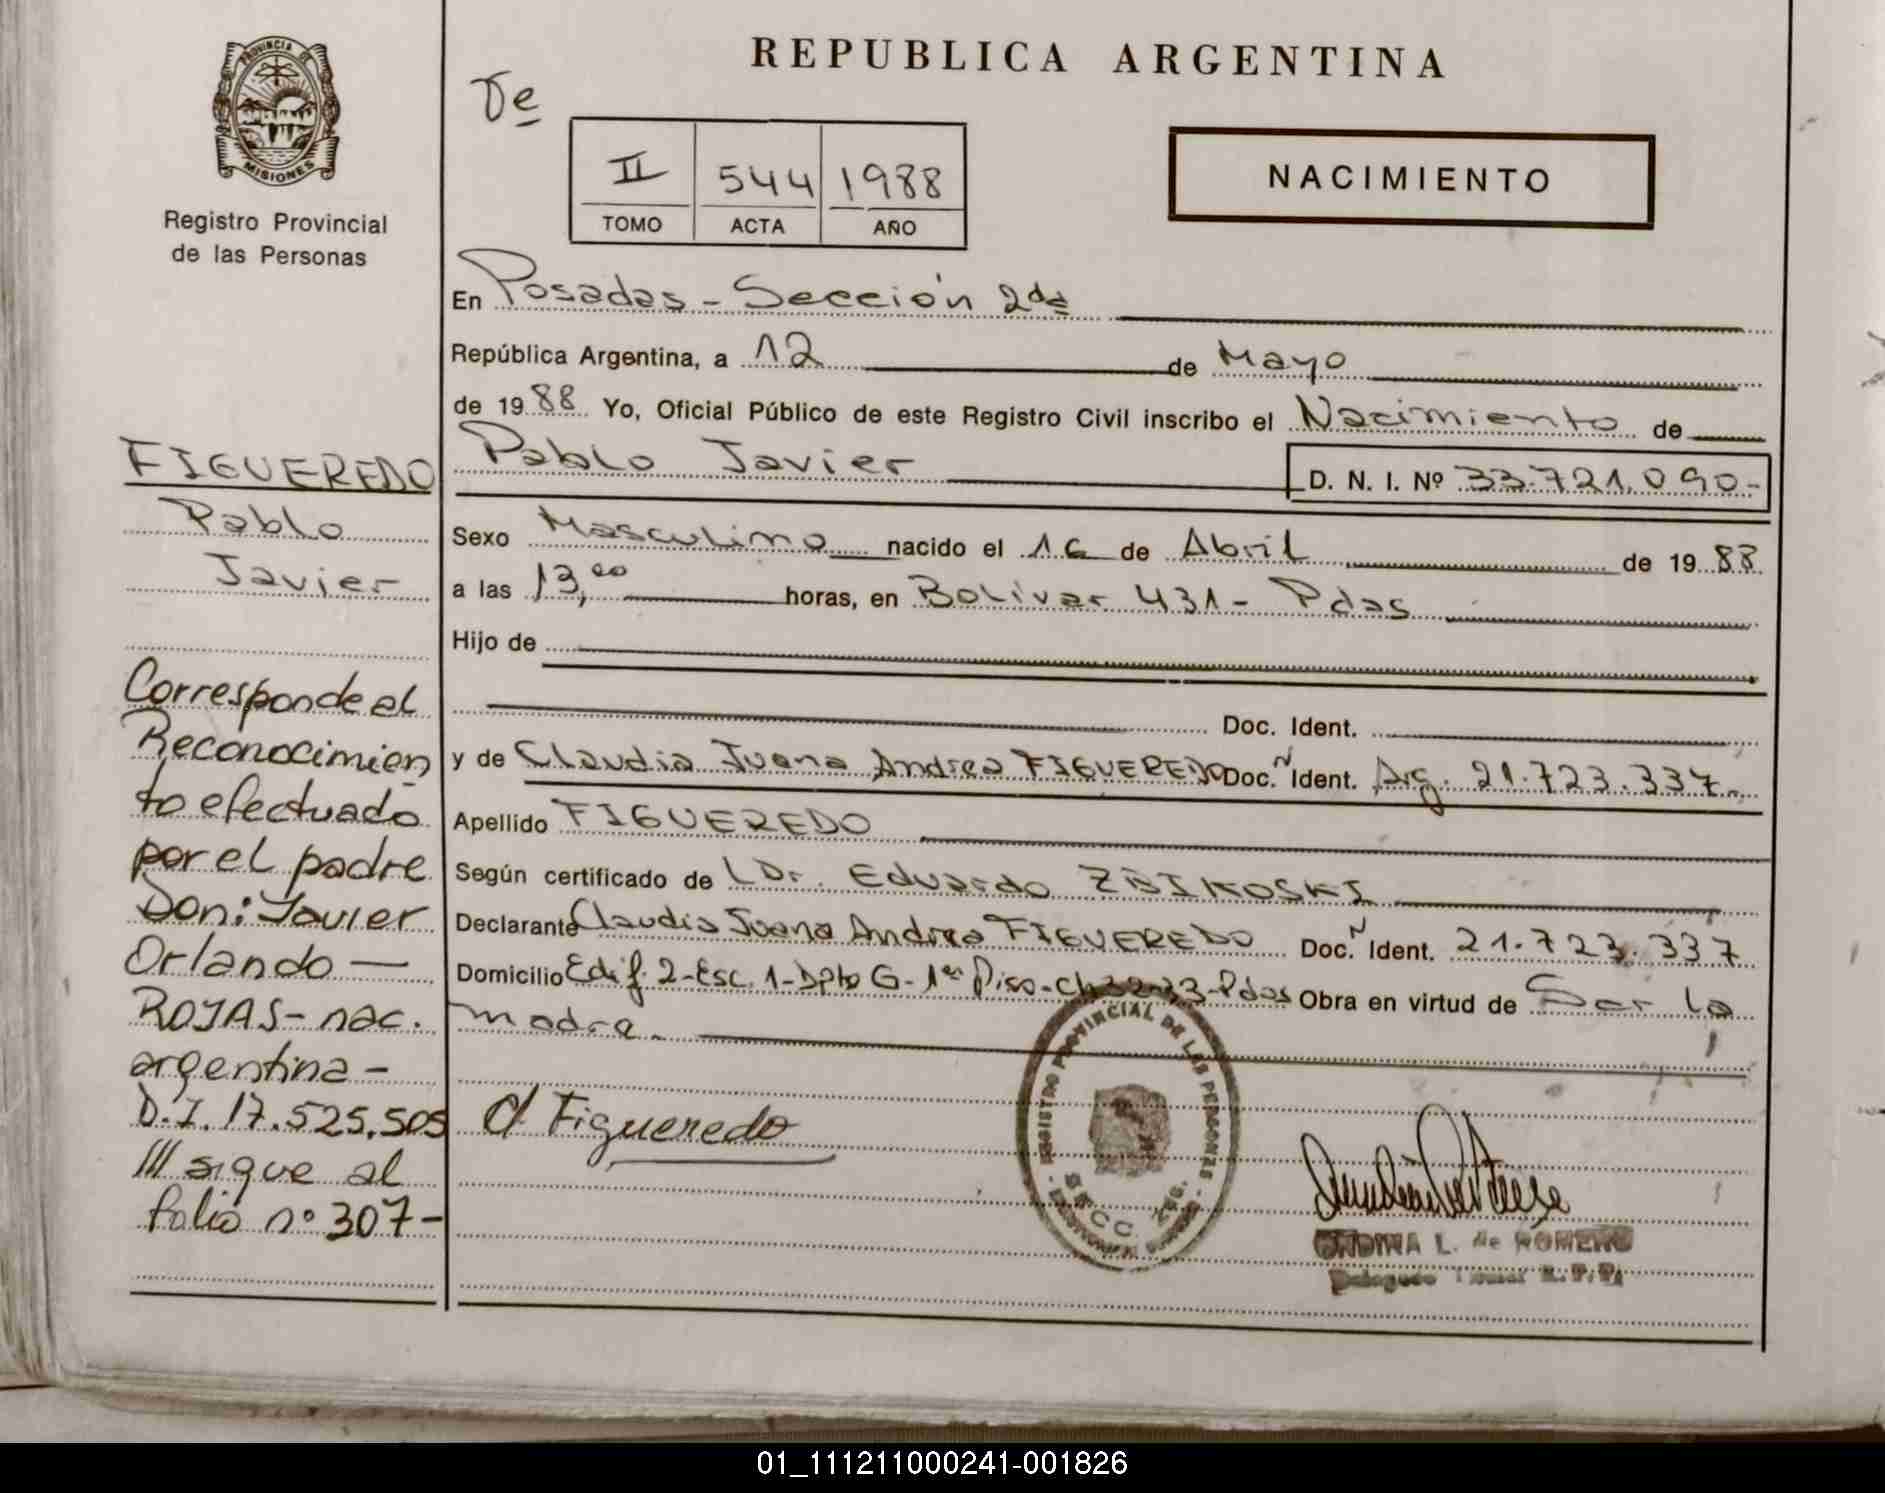 REPUBLICA ARGENTINA
PROVINCIA DE
MISIONES
Registro Provincial
de las Personas
II 544 1988
TOMO ACTA AÑO
NACIMIENTO
En Posadas - Sección 2da
República Argentina, a 12 de Mayo
de 1988 Yo, Oficial Público de este Registro Civil inscribo el Nacimiento de
Pablo Javier D. N. I. Nº 33.721.090-
Sexo Masculino nacido el 16 de Abril de 1988
a las 13,00 horas, en Bolivar 431- Pdas
Hijo de
Doc. Ident.
y de Claudia Juana Andrea FIGUEREDO Doc. Ident. Arg. 21.723.337-
Apellido FIGUEREDO
Según certificado de Dr. Eduardo ZBIKOSKI
Declarante Claudia Juana Andrea FIGUEREDO Doc. Ident. 21.723.337
Domicilio Edif. 2-Esc. 1-Dpto G-1er Piso-Ch 32-33-Pdas Obra en virtud de Ser la
madre.
FIGUEREDO
Pablo
Javier
Corresponde al
Reconocimien
to efectuado
por el padre
Don: Javier
Orlando —
ROJAS - nac.
argentina -
D.I. 17.525.505
/// sigue al
folio nº 307-
C/ Figueredo
REGISTRO PROVINCIAL DE LAS PERSONAS
SECC.
ONDINA L. de ROMERO
01_111211000241-001826